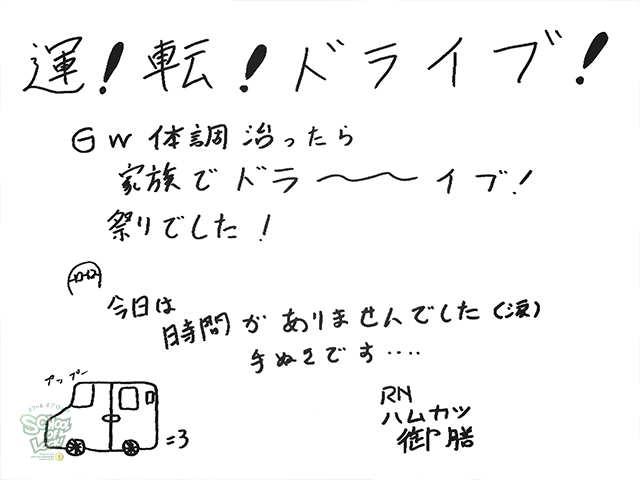 運！転！ドライブ！
GW体調治ったら
家族でドラ〜〜イブ！
祭りでした！
今日は
時間がありませんでした（涙）
手ぬきです‥‥
プップー
=3
RN
ハムカツ
御膳
School of Lock!